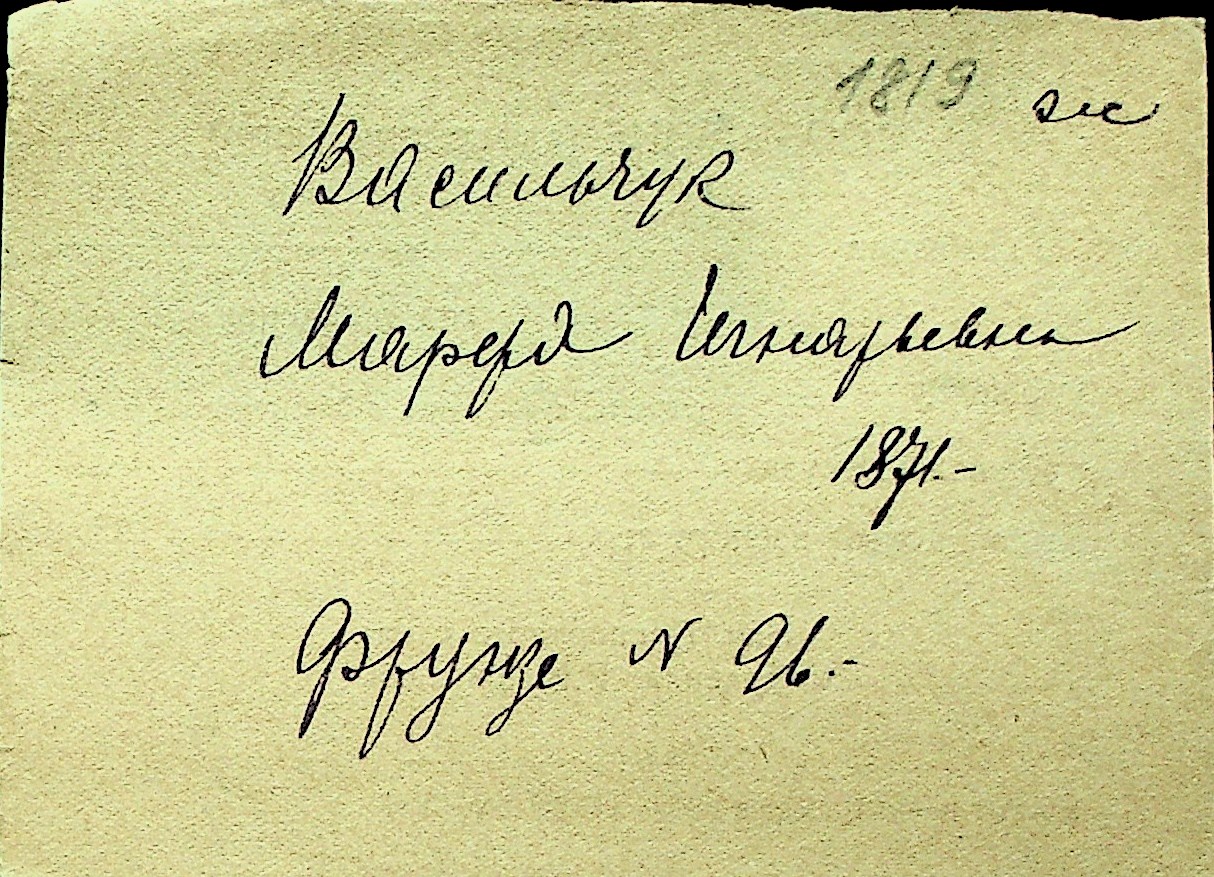 1819 ж
Васильчук
Марфа Игнатьевна
1871.-
Фрунзе N 96.-